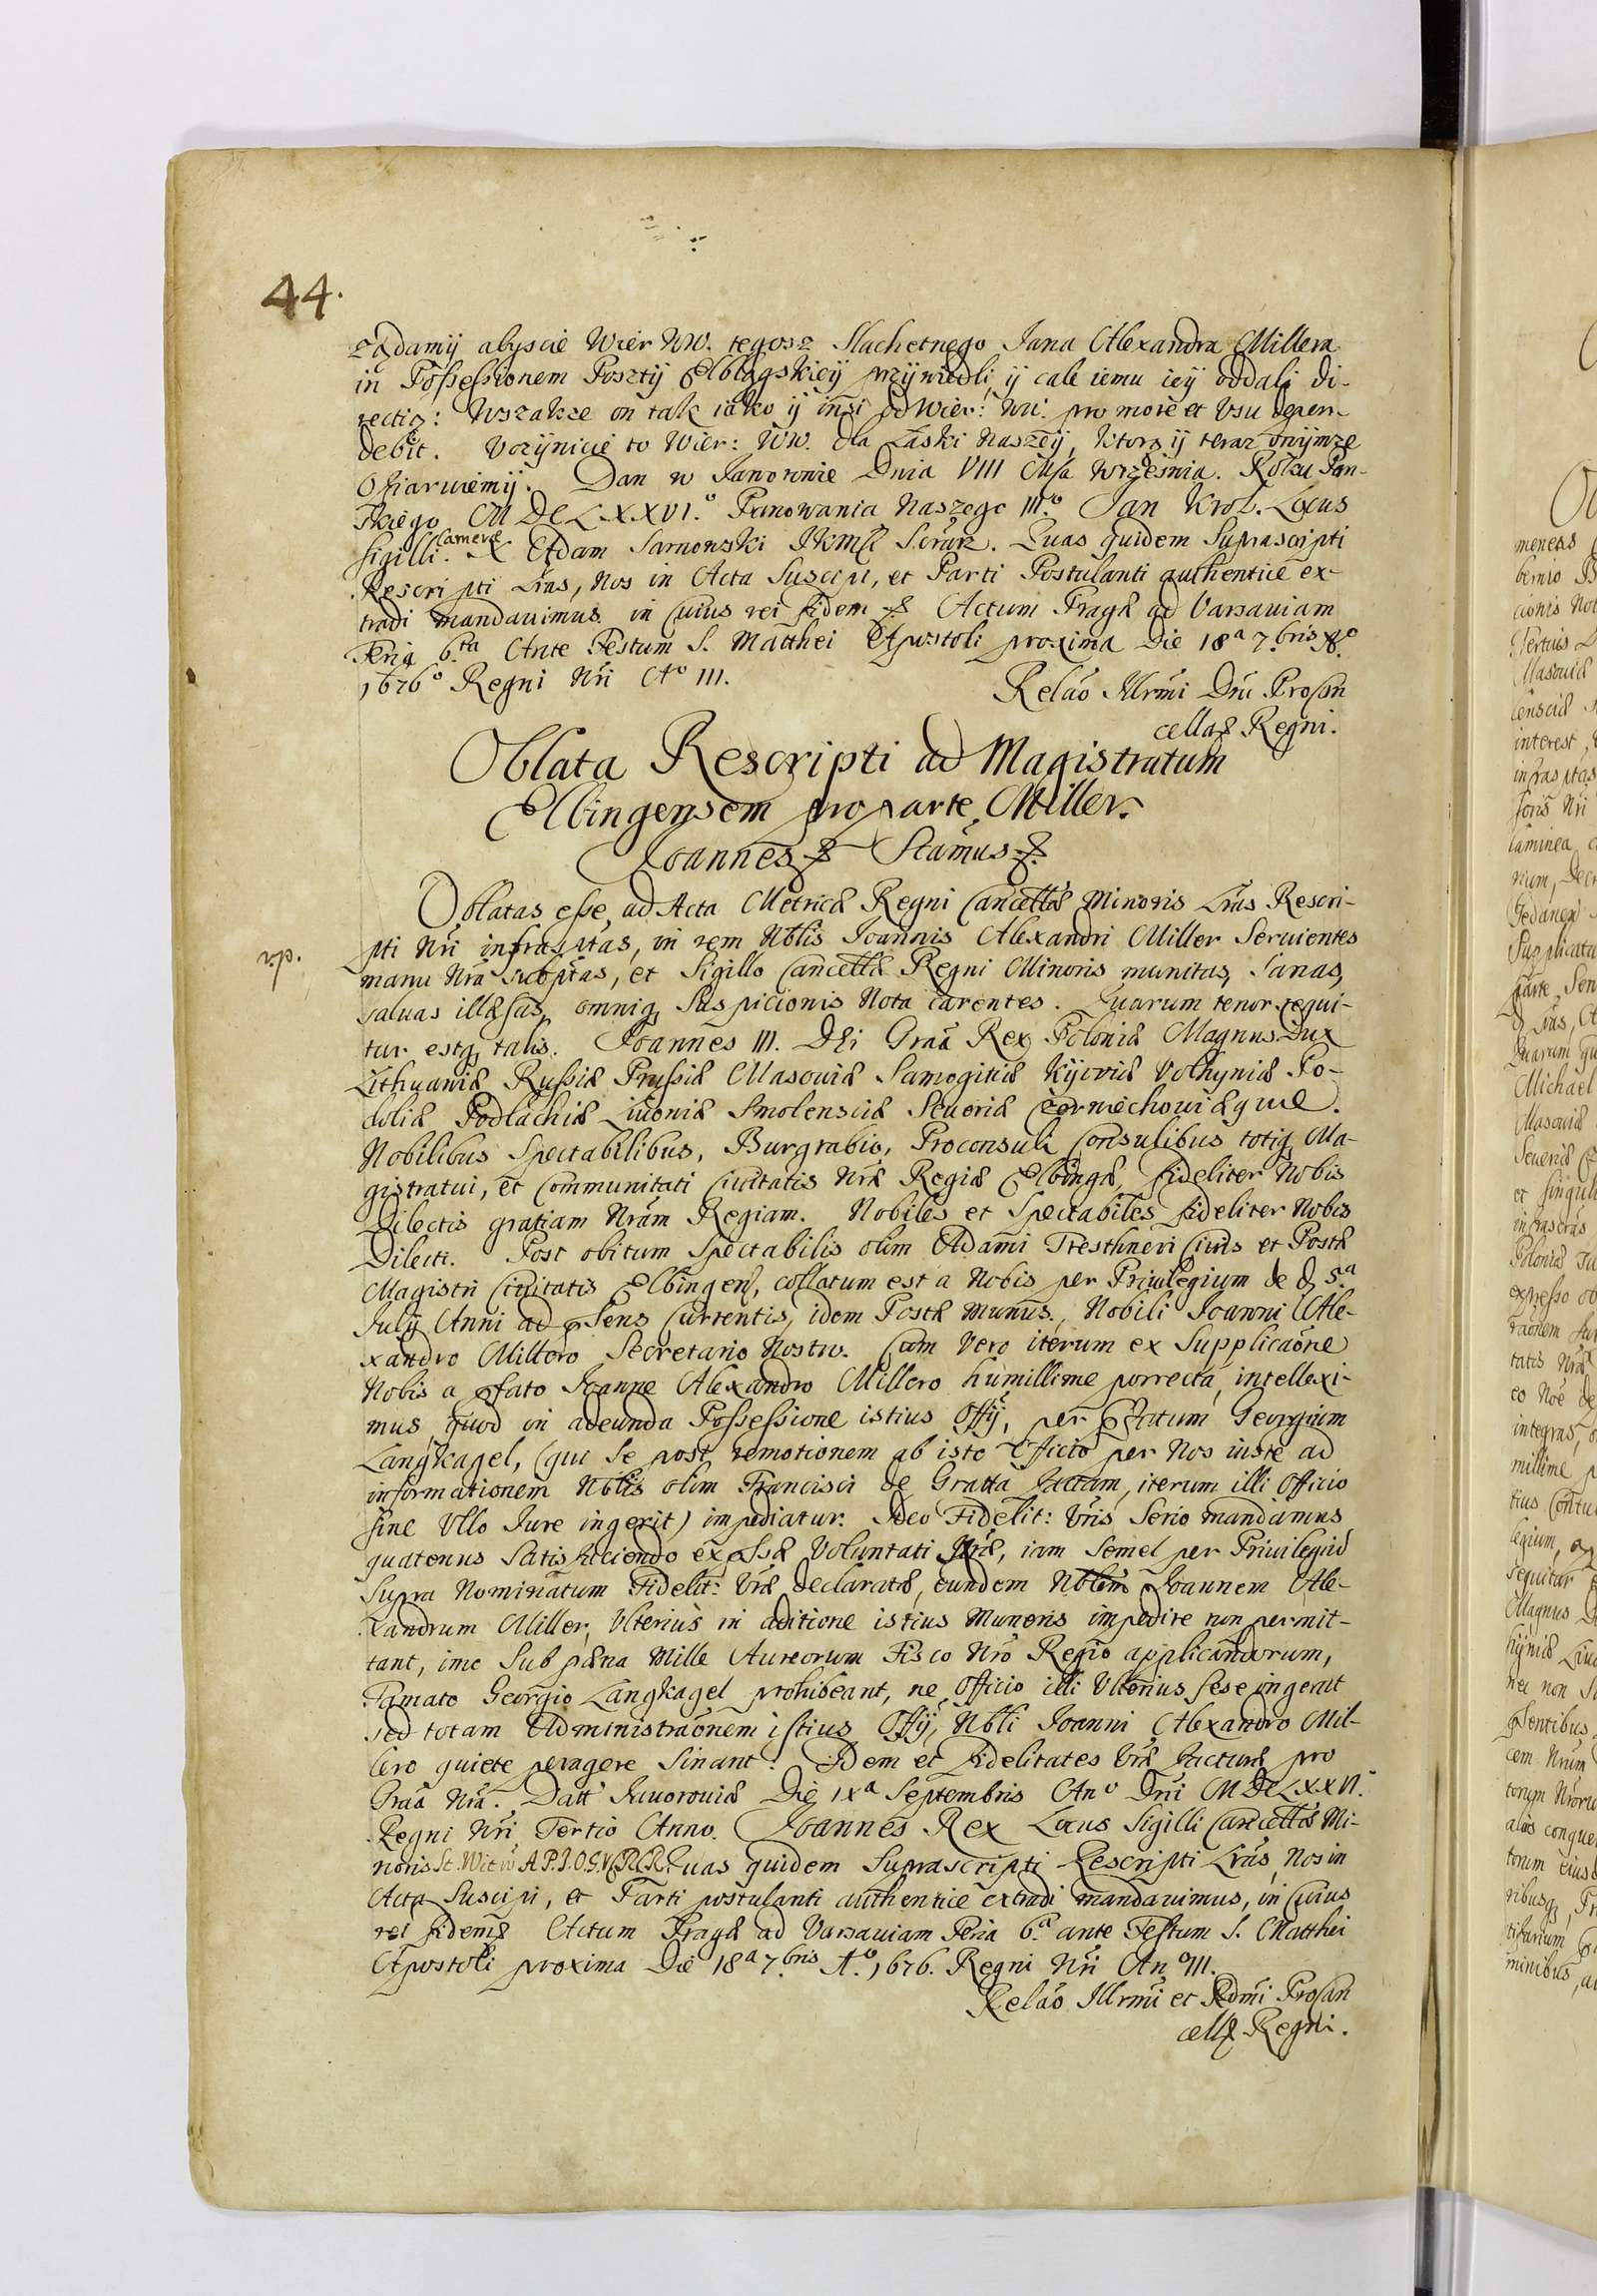 44.
żądamÿ abyscie Wier WW. tegosz Slachetnego Jana Alexandra Millera
in Possessionem Posztÿ Elblągskieÿ przÿwiedli, ÿ cale iemu ieÿ oddali di-
rectią: Wszakze on tak iako ÿ insi od Wier: WW. pro more et Vsu depen-
debit. Vczÿnicie to Wier: WW. dla Łaski Naszeÿ, ktorą ÿ teraz onÿmze
Ofiaruiemÿ. Dan w Janowie Dnia VIII Msa Wrzesnia. Roku Pan-
skiego M DC LXXVI.o Panowania Naszego III.o Jan Krol. Locus
Sigilli Cameræ X Adam Sarnowski JKMsci Secrarz. Quas quidem Suprascripti
Rescripti Lras, Nos in Acta Suscipi, et Parti Postulanti authentice ex-
tradi mandauimus. in Cuius rei fidem &. Actum Pragæ ad Varsauiam
Feria 6.ta Ante Festum S. Matthei Apostoli proxima Die 18a 7.bris Ao
1676o Regni Nri Ao III.
Relao Illrmi Dni Procan
cellae Regni.
Oblata Rescripti ad Magistratum
Elbingensem pro parte Miller.
Joannes & Stamus &.
Oblatas esse ad Acta Metricæ Regni Cancellæ Minoris Lras Rescri-
pti Nri infrasptas, in rem Nblis Joannis Alexandri Miller Seruientes
rp.
manu Nra subptas, et Sigillo Cancellæ Regni Minoris munitas, Sanas,
saluas illæsas, omniq Suspicionis Nota carentes. Quarum tenor sequi-
tur estq talis. Joannes III. Dei Graa Rex Poloniæ Magnus Dux
Lithuaniæ Russiæ Prussiæ Masouiæ Samogitiæ Kijoviæ Volhyniæ Po-
doliæ Podlachiæ Liuoniæ Smolensciæ Seueriæ Czerniechouiæque.
Nobilibus Spectabilibus, Burgrabio, Proconsuli Consulibus totiq Ma-
gistratui, et Communitati Ciuitatis Nræ Regiæ Elbingæ, fideliter Nobis
Dilectis gratiam Nram Regiam. Nobiles et Spectabiles fideliter Nobis
Dilecti. Post obitum Spectabilis olim Adami Tresthneri Ciuis et Postæ
Magistri Ciuitatis Elbingen, collatum est a Nobis per Priuilegium de d 5.a
Julÿ Anni ad psens Currentis, idem Postæ munus, Nobili Joanni Ale-
xandro Millero Secretario Nostro. Cum Vero iterum ex Supplicaone
Nobis a pfato Joanne Alexandro Millero humillime porrecta, intellexi-
mus, quod in adeunda Possessione istius Offÿ, per Georgium
Langkagel, (qui se post remotionem ab isto Officio per Nos iuste ad
informationem Nblis olim Francisci de Gratta factam, iterum illi Officio
sine Vllo Jure ingerit) impediatur. Ideo Fidelit: Vris Serio mandamus
quatenus Satisfaciendo expssæ Voluntati Nræ, iam Semel per Priuilegiu
Supra Nominatum Fidelit: Vræ declaratæ, eundem Nblem Joannem Ale-
xandrum Miller, Vlterius in aditione istius Muneris impedire non permit-
tant, imo Sub pæna Mille Aureorum Fisco Nro Regio applicandorum,
Famato Georgio Langkagel prohibeant, ne Officio illi Vlterius sese ingerat
sed totam Administraonem istius Offÿ, Nbli Joanni Alexandro Mil-
lero quiete peragere Sinant. Idem et fidelitates Vræ facturæ pro
Graa Nra. Datt Jauorouiæ Die IXa Septembris Ano Dni M DC LXXVI.
Regni Nri Tertio Anno. Joannes Rex Locus Sigilli Cancellæ Mi-
noris St. Witw A.P.J.O.G.V.C.R.R. Quas quidem Suprascripti Rescripti Lras, Nos in
Acta Suscipi, et Parti postulanti authentice extradi mandauimus, in Cuius
rei fidem & Actum Pragæ ad Varsauiam Feria 6.a ante Festum S. Matthei
Apostoli proxima Die 18a 7.bris A.o 1676. Regni Nri Ano III.
Relao Illrmi et Rdmi Procan
cellæ Regni.